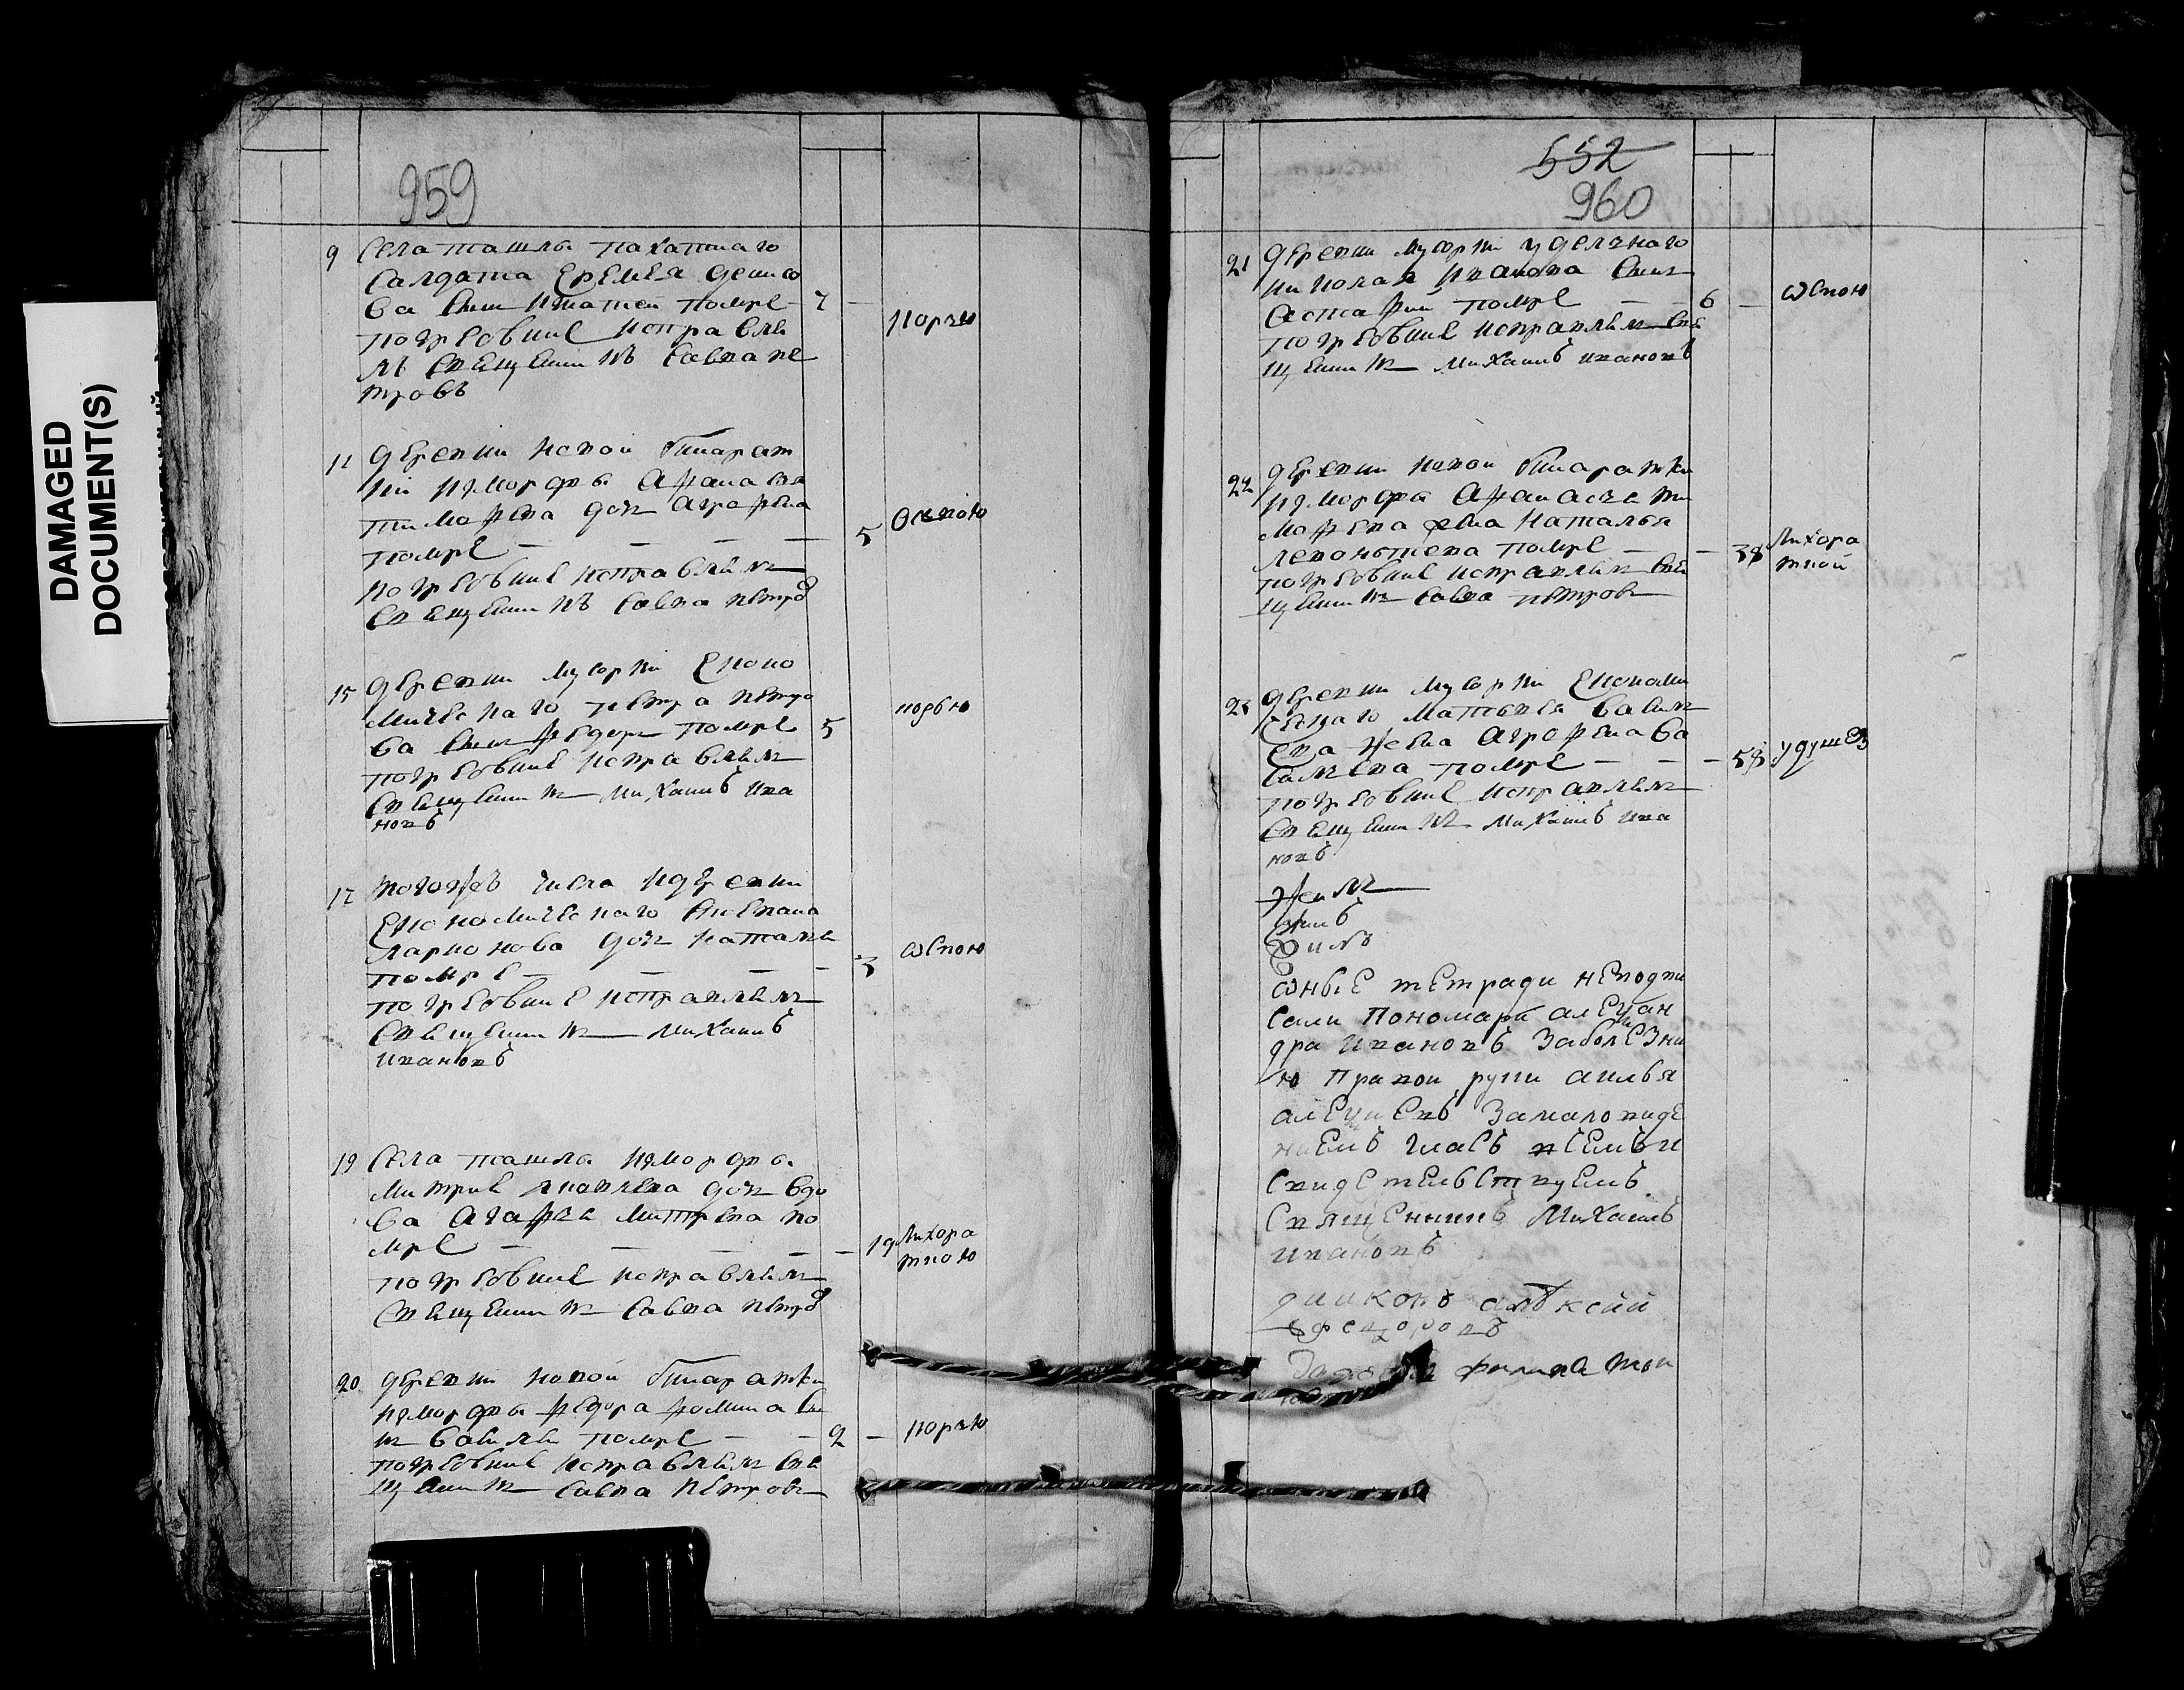 DAMAGED
DOCUMENT(S)
959
9 Села ташлы пахатнаго
Салдата Еремея денисо
ва Сынъ Игнатеи помре — 7 — корью
погребение исправля
лъ Священникъ Савва пе
тровъ
11 деревни новой Бинарат
ки мордвы Афанасья
тимофева дочь Аграфена
помре — — — — 5 Оспою
погребение исправлялъ
Священникъ Савва петро
15 деревни мусорки Еконо
мическаго петра петро
ва Сынъ федоръ помре 5 корью
погребение исправлялъ
Священникъ Михаилъ ива
новъ
17 тогожъ числа деревни
Економическаго
ларионова дочь наталья
помре — — — — 3 Оспою
погребение исправлялъ
Священникъ Михаилъ
ивановъ
19 Села ташлы мордвы
Митрия яковлева дочь вдо
ва Агафья Митрева по
мре — — — — — 19 Лихора
ткою
погребение исправлялъ
Священникъ Савва петро
20 деревни новой Бинаратки
мордвы федора фомина Сы
нъ василеи помре — — 2 — корью
погребение исправлялъ Свя
щенникъ Савва петровъ
552
960
21 деревни мусорки удельнаго
николая иванова Сынъ
Астафии помре — — 6 — Оспою
погребение исправлялъ Свя
щенникъ Михаилъ ивановъ
22 деревни новой Бинаратки
мордвы Афанасья ти
мофева жена Наталья
левонтева помре — — 38 Лихора
ткой
погребение исправлялъ Свя
щенникъ Савва петровъ
23 деревни мусорки Економи
ческаго Матвея Савель
ева жена Аграфена Ва
сильева помре — — — 58 удушев
погребение исправлялъ
Священникъ Михаилъ ива
новъ
оные тетради неподпи
сали Пономари алексан
дра ивановъ Заболезни
ю правои руки аилья
алексеевъ Замаловиде
ниемъ глазъ
Свидетельствуемъ
Священникъ Михаилъ
ивановъ
диаконъ алексий
федоровъ
филипа